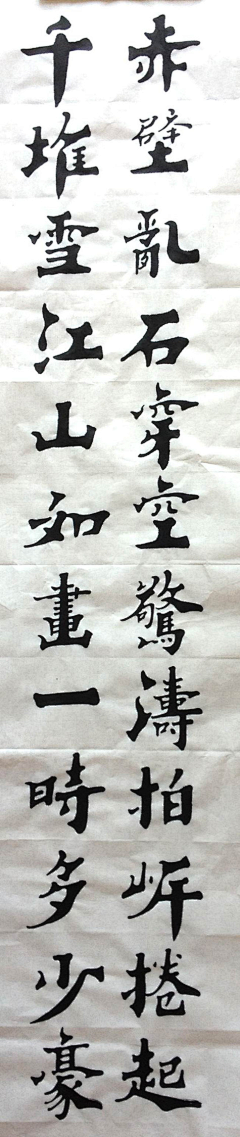 赤壁亂石穿空驚濤拍岍捲起
千堆雪江山如畫一時多少豪